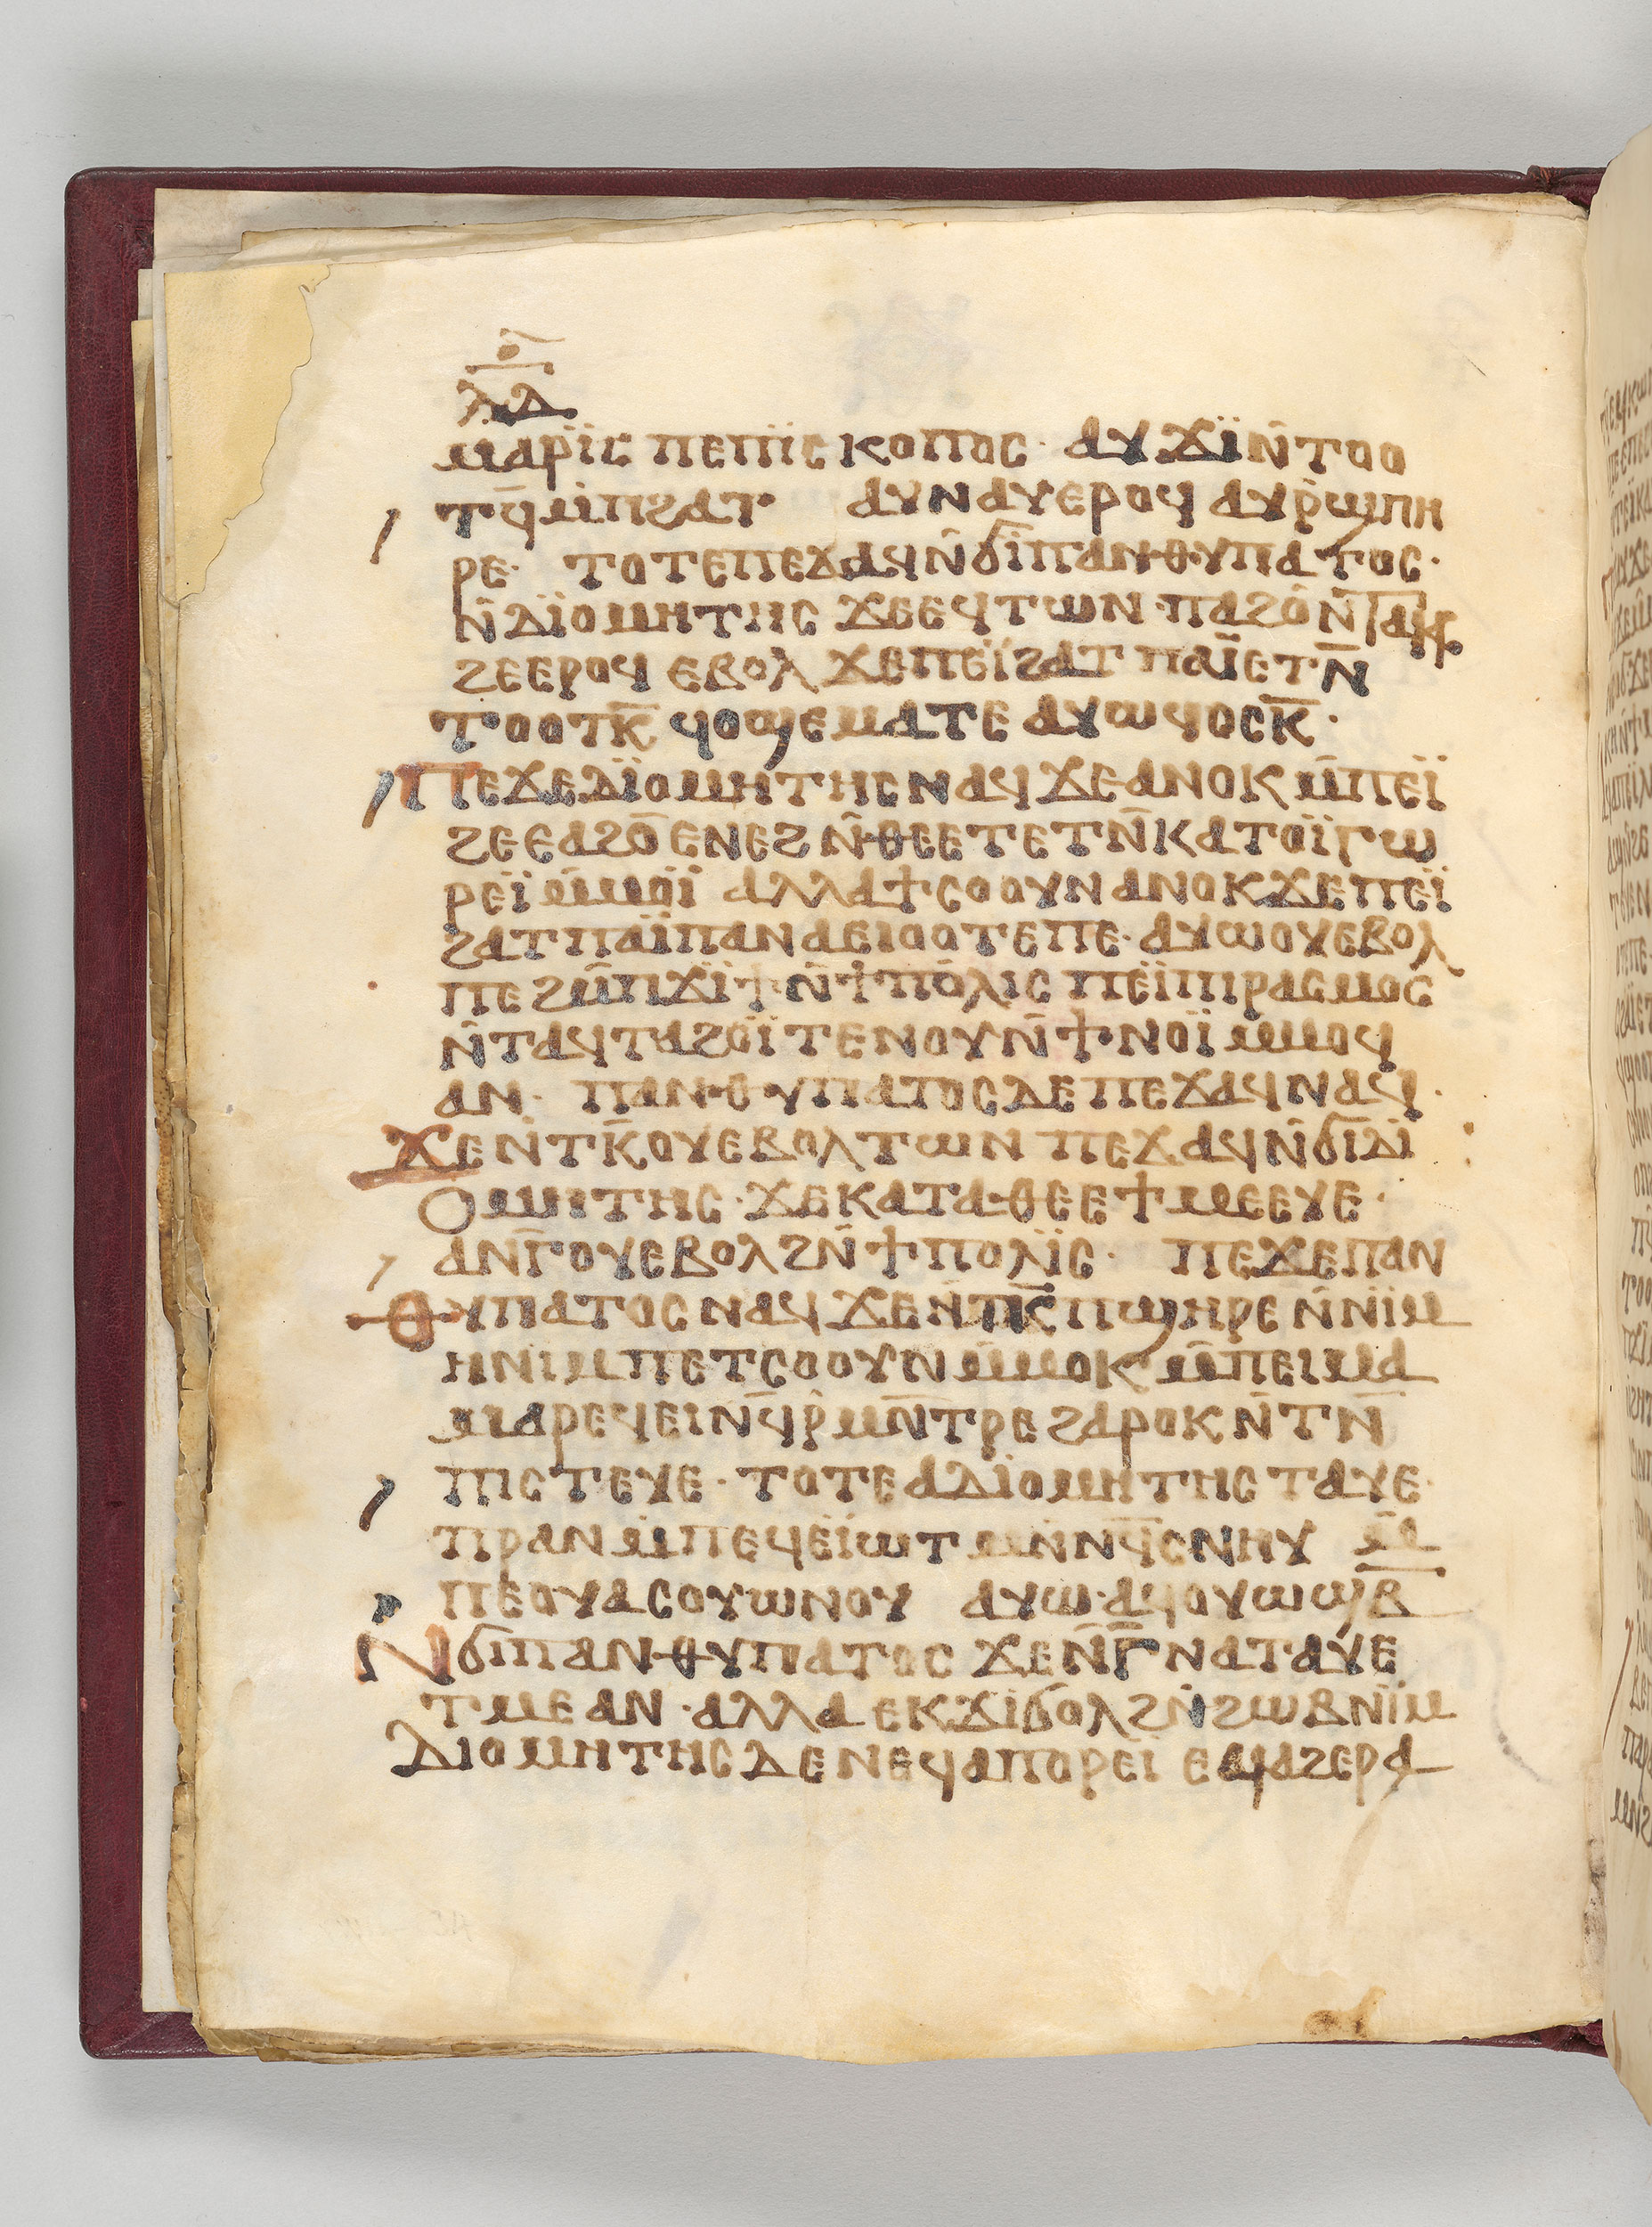 ⲗⲇ
ⲙⲁⲣⲓ̈ⲥ ⲡⲉⲡⲓ̈ⲥⲕⲟⲡⲟⲥ· ⲁⲩϫⲓ̈ⲛ̄ⲧⲟⲟ
ⲧϥ̄ⲙ̄ⲡϩⲁⲧ ⲁⲩⲛⲁⲩⲉⲣⲟϥ ⲁⲩⲣ̄ϣⲡⲏ
ⲣⲉ· ⲧⲟⲧⲉⲡⲉϫⲁϥⲛ̄ϭⲓⲡⲁⲛⲑⲩⲡⲁⲧⲟⲥ·
ⲛ̄ⲇⲓ̈ⲟⲙⲏⲧⲏⲥ ϫⲉⲉϥⲧⲱⲛ·ⲡⲁϩⲟ̄ⲛ̄ⲧⲁⲕ
ϩⲉⲉⲣⲟϥ ⲉⲃⲟⲗ ϫⲉⲡⲉⲓ̈ϩⲁⲧ ⲡⲁⲓ̈ⲉⲧⲛ̄
ⲧⲟⲟⲧⲕ̄ ϥⲟϣⲉⲙⲁⲧⲉ ⲁⲩⲱϥⲟⲥⲕ̄·
ⲡⲉϫⲉⲇⲓ̈ⲟⲙⲏⲧⲏⲥⲛⲁϥ ϫⲉⲁⲛⲟⲕ ⲙ̄ⲡⲉⲓ̈
ϩⲉⲉⲁϩⲟ̄ⲉⲛⲉϩ ⲛ̄ⲑⲉⲉⲧⲉⲧⲛ̄ⲕⲁⲧⲟⲓ̈ⲅⲱ
ⲣⲉⲓ̈ ⲙ̄ⲙⲟⲓ̈ ⲁⲗⲗⲁϯⲥⲟⲟⲩⲛ ⲁⲛⲟⲕϫⲉⲡⲉⲓ̈
ϩⲁⲧ ⲡⲁⲓ̈ⲡⲁⲛⲁⲉⲓⲟⲟⲧⲉⲡⲉ· ⲁⲩⲱⲟⲩⲉⲃⲟⲗ
ⲡⲉϩⲙ̄ⲡϫⲓ̈ϯ·ⲛ̄ϯⲡⲟⲗⲓⲥ ⲡⲉⲓ̈ⲡⲓⲣⲁⲥⲙⲟⲥ
ⲛ̄ⲧⲁϥⲧⲁϩⲟⲓ̈ ⲧⲉⲛⲟⲩⲛ̄ϯ·ⲛⲟⲓ̈ ⲙⲙⲟϥ
ⲁⲛ· ⲡⲁⲛⲑⲩⲡⲁⲧⲟⲥⲇⲉⲡⲉϫⲁϥⲛⲁϥ·
ϫⲉⲛ̄ⲧⲕ̄ⲟⲩⲉⲃⲟⲗⲧⲱⲛ ⲡⲉϫⲁϥⲛ̄ϭⲓⲇⲓ
ⲟⲙⲏⲧⲏⲥ·ϫⲉⲕⲁⲧⲁⲑⲉⲉϯⲙⲉⲉⲩⲉ·
ⲁⲛⲅ̄ⲟⲩⲉⲃⲟⲗϩⲛ̄ϯⲡⲟⲗⲓ̈ⲥ· ⲡⲉϫⲉⲡⲁⲛ
ⲑⲩⲡⲁⲧⲟⲥⲛⲁϥ ϫⲉⲛ̄ⲧⲕ̄ⲡϣⲏⲣⲉⲛ̄ⲛⲓ̈ⲙ
ⲏⲛⲓⲙⲡⲉⲧⲥⲟⲟⲩⲛⲙ̄ⲙⲟⲕ ⲙ̄ⲡⲉⲓⲙⲁ
ⲙⲁⲣⲉϥⲉⲓⲛϥ̄ⲣ̄ⲙⲛ̄ⲧⲣⲉϩⲁⲣⲟⲕ ⲛ̄ⲧⲛ̄
ⲡⲓⲥⲧⲉⲩⲉ· ⲧⲟⲧⲉⲁⲇⲓⲟⲙⲏⲧⲏⲥⲧⲁⲩⲉ·
ⲡⲣⲁⲛⲙ̄ⲡⲉϥⲉⲓ̈ⲱⲧ ⲙⲛ̄ⲛϥ̄ⲥⲛⲏⲩ ⲙ̄
ⲡⲉⲟⲩⲁⲥⲟⲩⲱⲛⲟⲩ ⲁⲩⲱ·ⲁϥⲟⲩⲱϣⲃ̄
ⲛϭⲓⲡⲁⲛⲑⲩⲡⲁⲧⲟⲥ ϫⲉⲛⲅ̄ⲛⲁⲧⲁⲩⲉ
ⲧⲙⲉ ⲁⲛ·ⲁⲗⲗⲁ ⲉⲕϫⲓϭⲟⲗϩⲛ̄ϩⲱⲃⲛⲓ̈ⲙ
ⲇⲓⲟⲙⲏⲧⲏⲥⲇⲉⲛⲉϥⲁⲡⲟⲣⲉⲓ̈ ⲉϥⲁϩⲉⲣⲁ